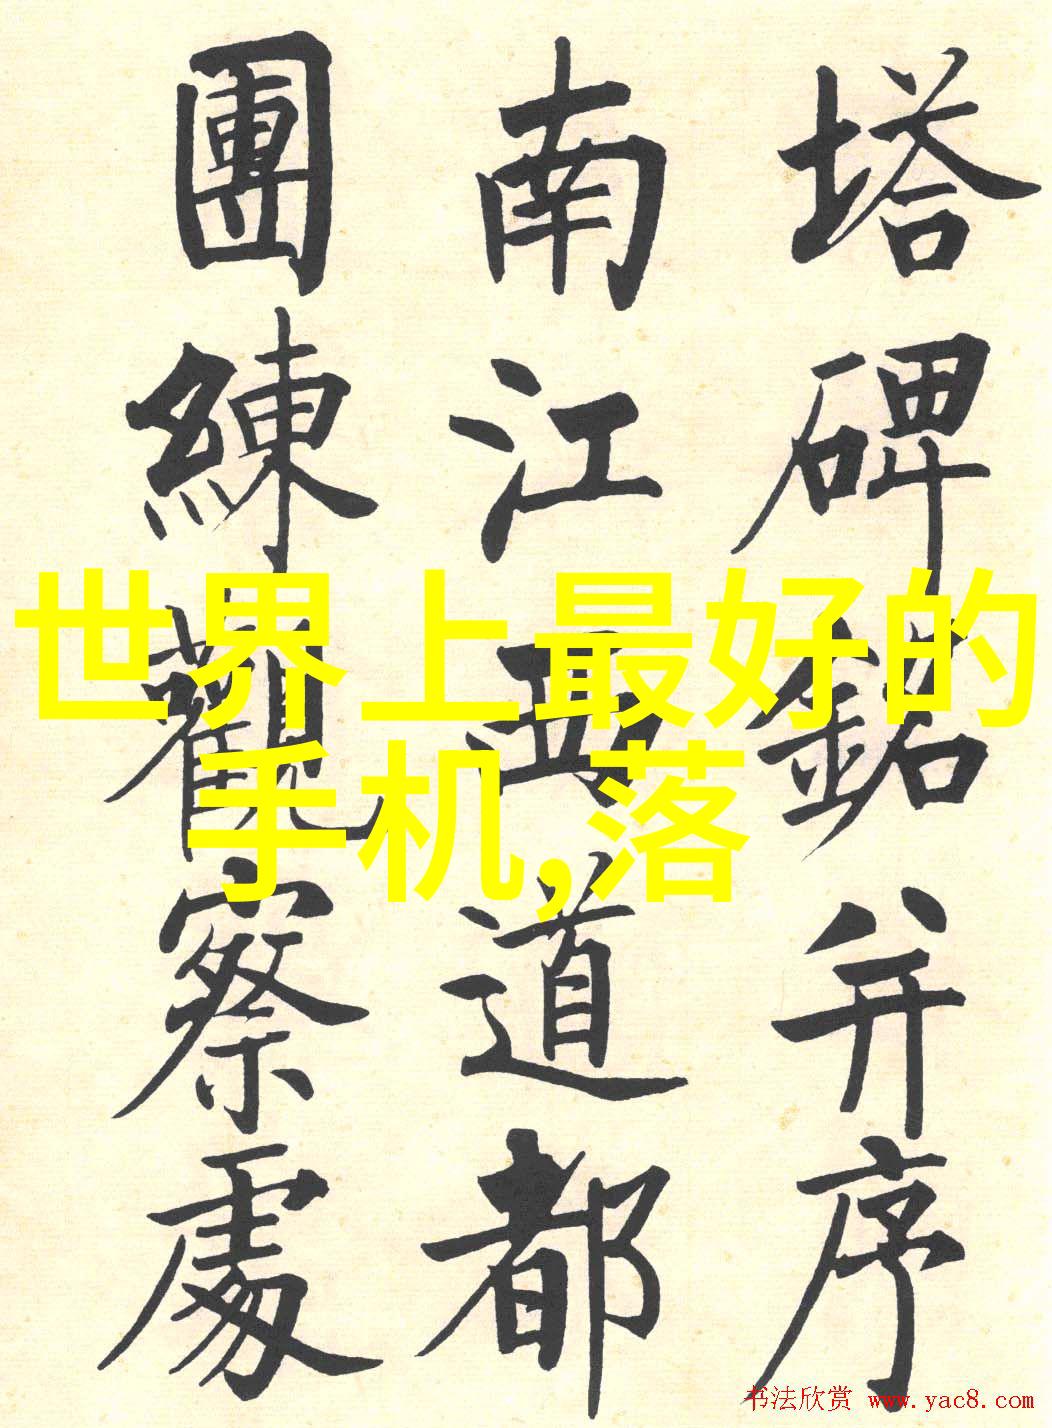 塔碑銘并序
南江西道都
團練觀察處
世界上最好的
手机,落
书法欣赏 www.yac8.com